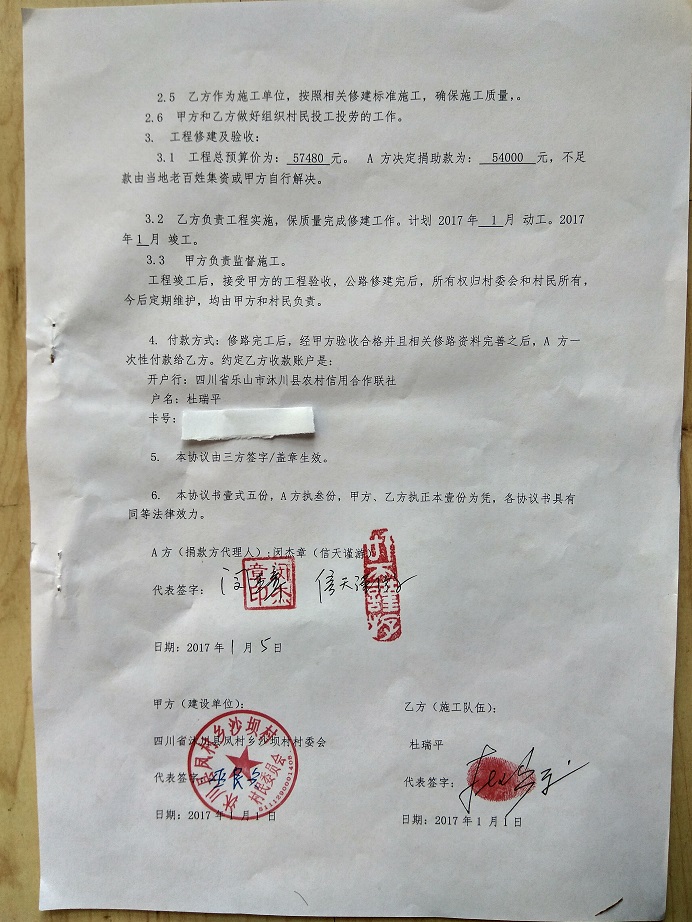 2.5 乙方作为施工单位，按照相关修建标准施工，确保施工质量，。
2.6 甲方和乙方做好组织村民投工投劳的工作。
3. 工程修建及验收：
3.1 工程总预算价为： 57480 元。 A 方决定捐助款为： 54000 元，不足
款由当地老百姓集资或甲方自行解决。
3.2 乙方负责工程实施，保质量完成修建工作。计划 2017 年 1 月 动工。2017
年 1 月 竣工。
3.3 甲方负责监督施工。
工程竣工后，接受甲方的工程验收，公路修建完后，所有权归村委会和村民所有，
今后定期维护，均由甲方和村民负责。
4. 付款方式：修路完工后，经甲方验收合格并且相关修路资料完善之后，A 方一
次性付款给乙方。约定乙方收款账户是：
开户行：四川省乐山市沐川县农村信用合作联社
户名：杜瑞平
卡号：
5. 本协议由三方签字/盖章生效。
6. 本协议书壹式五份，A方执叁份，甲方、乙方执正本壹份为凭，各协议书具有
同等法律效力。
A方（捐款方代理人）：闵杰章（信天谨游）
代表签字： 闵杰章 信天谨游
闵杰章印
日期：2017 年 1 月 5 日
甲方（建设单位）：
四川省沐川县凤村乡沙坝村村委会
代表签字：
沐川县凤村乡沙坝村
村民委员会
日期：2017 年 1 月 1 日
乙方（施工队伍）：
杜瑞平
代表签字： 杜瑞平
日期：2017 年 1 月 1 日